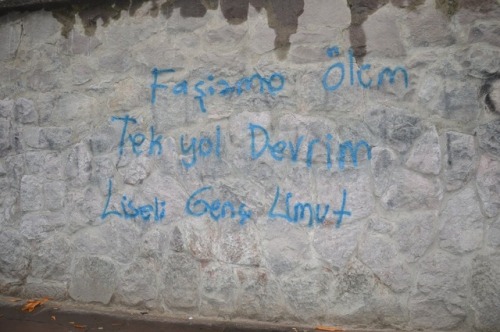 Faşizme Ölüm
Tek yol Devrim
Liseli Genç Umut